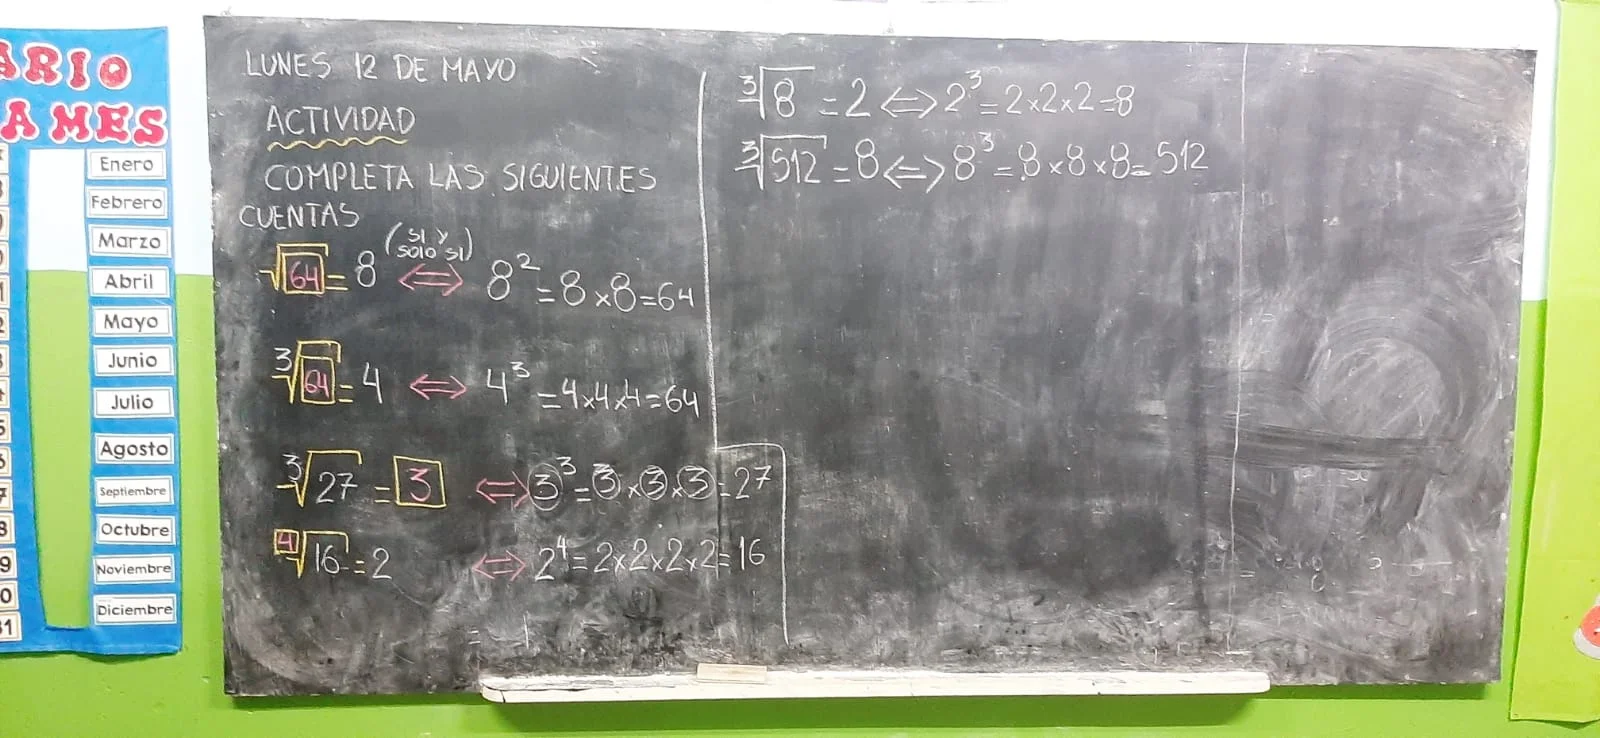 ARIO
AMES
Enero
Febrero
Marzo
Abril
Mayo
Junio
Julio
Agosto
Septiembre
Octubre
Noviembre
Diciembre
9
LUNES 12 DE MAYO
ACTIVIDAD
COMPLETA LAS SIGUIENTES
CUENTAS
√64 = 8 (SI Y SOLO SI) ⟺ 8² = 8 × 8 = 64
³√64 = 4 ⟺ 4³ = 4 × 4 × 4 = 64
³√27 = 3 ⟺ 3³ = 3 × 3 × 3 = 27
⁴√16 = 2 ⟺ 2⁴ = 2 × 2 × 2 × 2 = 16
³√8 = 2 ⟺ 2³ = 2 × 2 × 2 = 8
³√512 = 8 ⟺ 8³ = 8 × 8 × 8 = 512